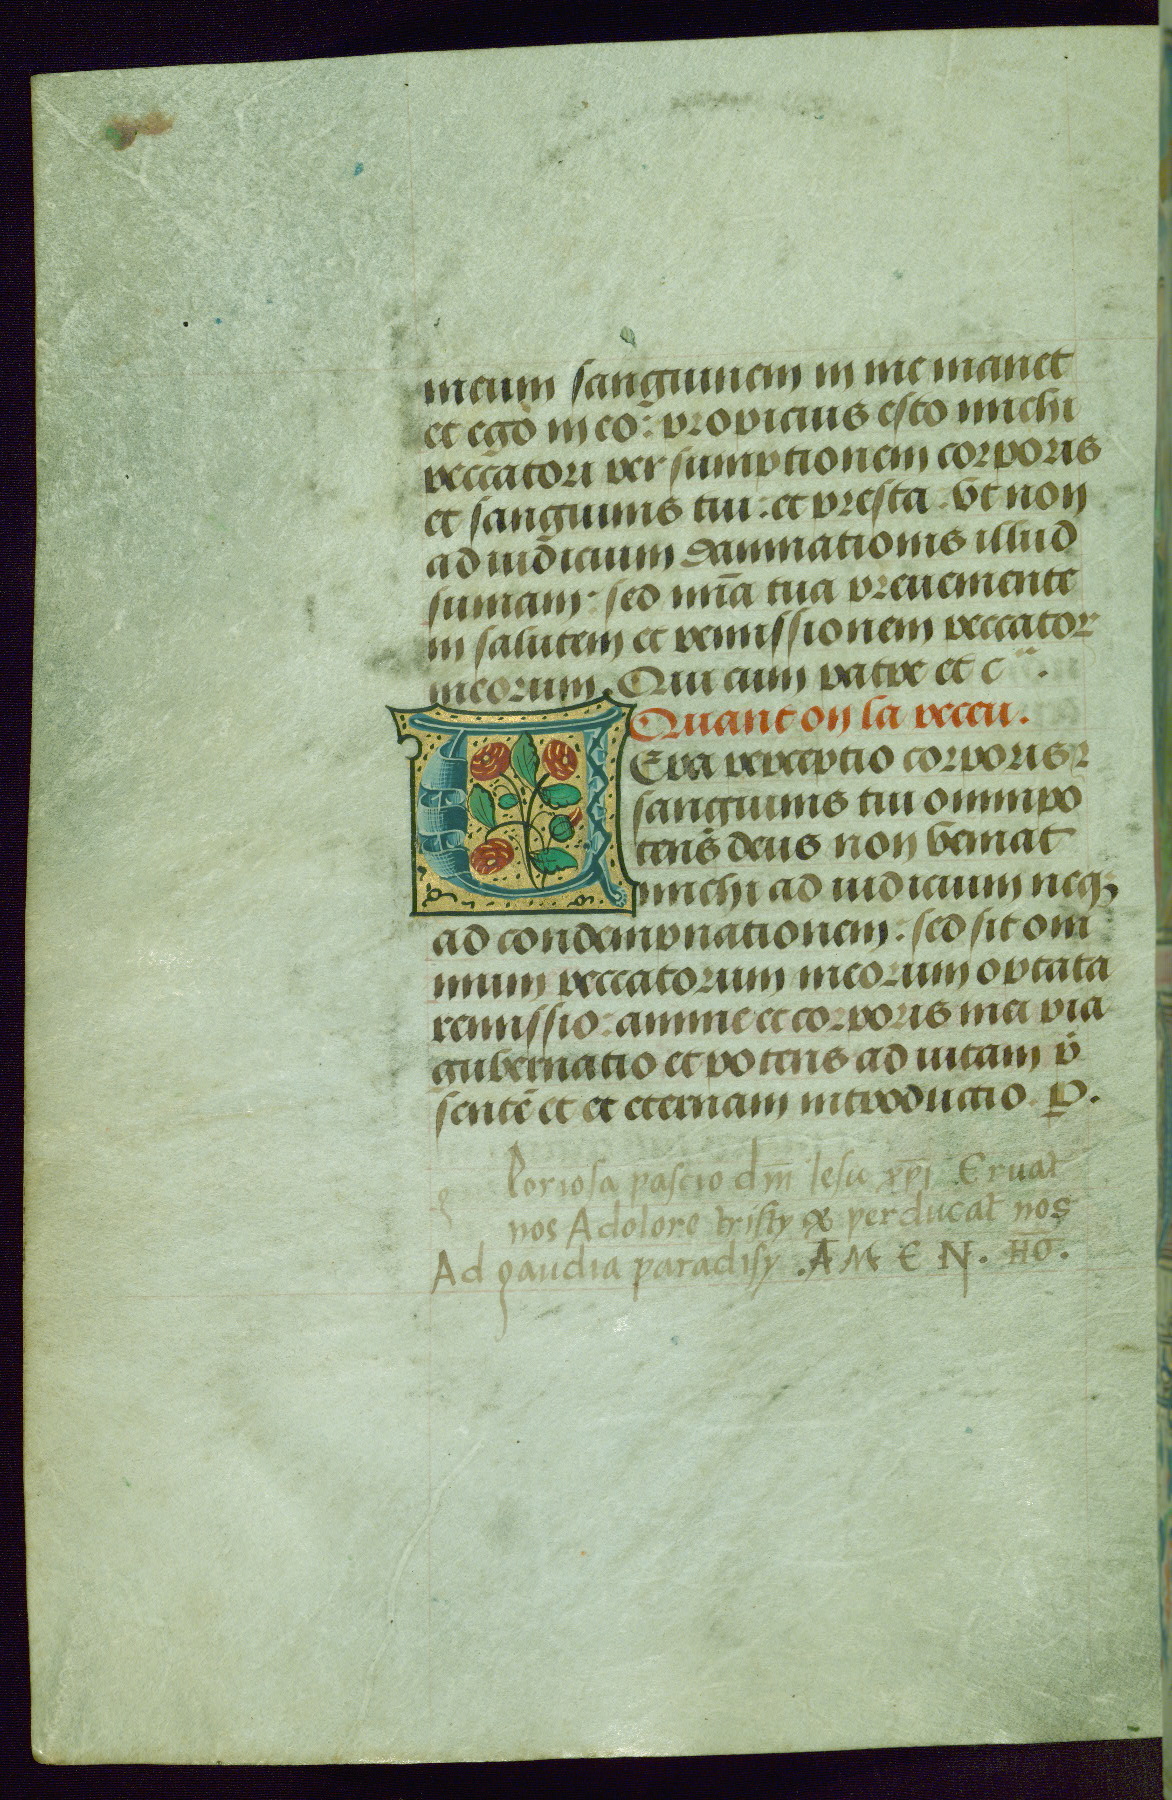 meum sanguinem in me manet
et ego in eo: propicius esto michi
peccatori per sumptionem corporis
et sanguinis tui: et presta vt non
ad iudicium dampnationis illud
sumam: sed mīa tua preueniente
in salutem et remissionem peccator
meorum. Qui cum patre et c.
Quant on la receu.
Vera perceptio corporis
sanguinis tui omnipo
tens deus non veniat
michi ad iudicium neq;
ad condempnationem: sed sit om
nium peccatorum meorum optata
remissio: anime et corporis mei pia
gubernatio et potens ad uitam p̄
sentē et et eternam introductio. P.
gloriosa pascio dm̄ Iesu xp̄i Eruat
nos Adolore tristy & perducat nos
Ad gaudia paradisy .AMEN. HO.